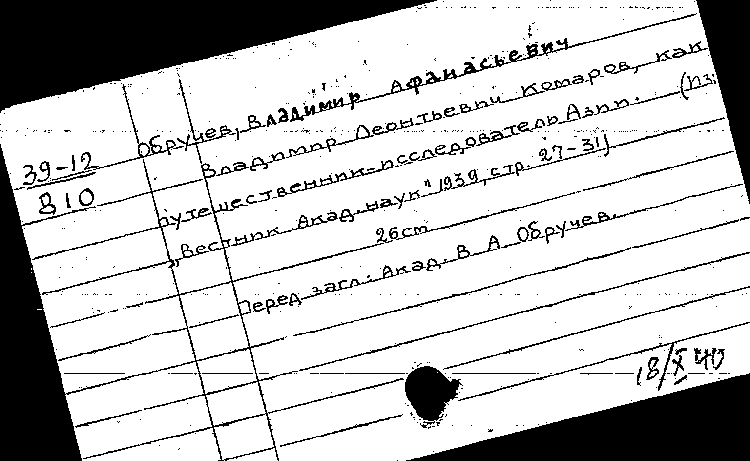 39-12
810
Обручев, Владимир Афанасьевич
Владимир Леонтьевич Комаров, как
путешественник-исследователь Азии. (Из
„Вестник Акад. наук" 1939, стр. 27-31)
26cm
Перед загл.: Акад. В А Обручев.
18/X 40